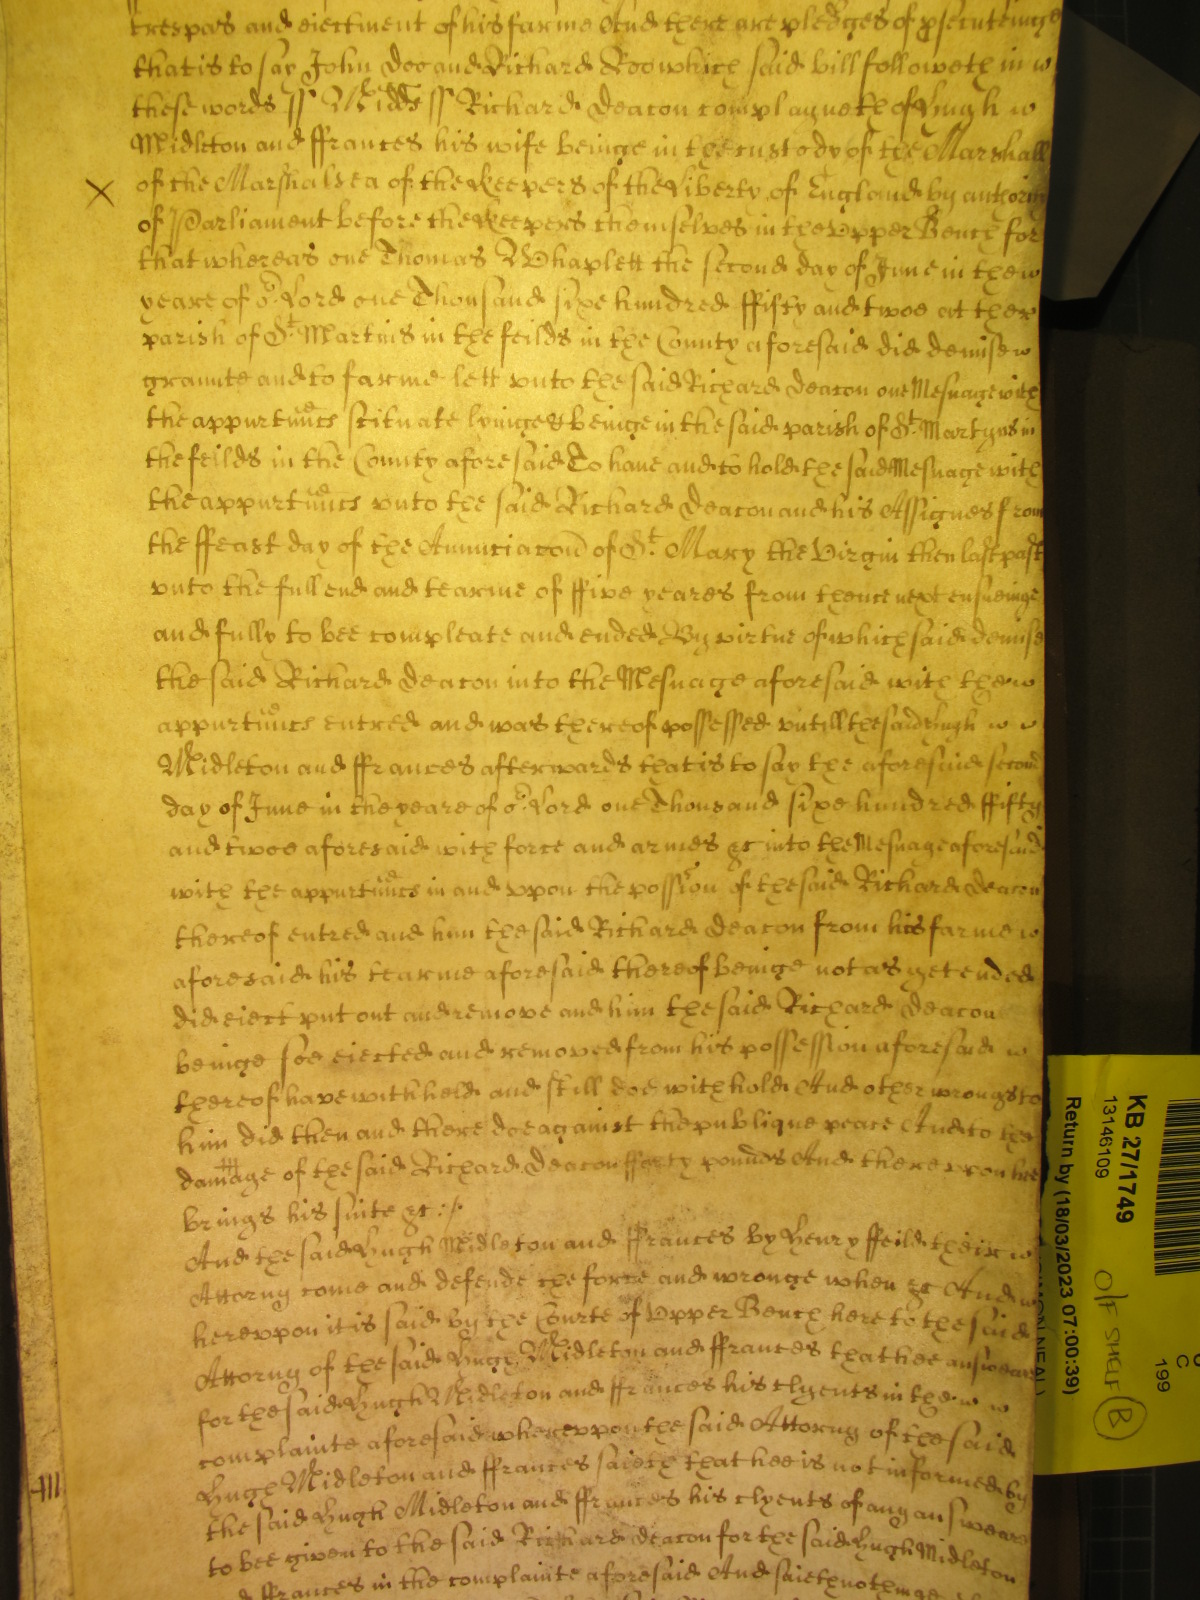 trespas and eiectment of his farme And there are pledges of psecuteinge
that is to say John Doo and Richard Roo which said bill followeth in
these words ss Midds ss Richard Deacon complayneth of Hugh
Midleton and ffrances his wife beinge in the custody of the Marshall
of the Marshalsea of the Keepers of the Liberty of England by authority
of Parliament before the Keepers themselves in the Vpper Bench for
that whereas one Thomas Whaplett the second day of June in the
yeare of or Lord one Thousand sixe hundred ffifty and twoe at the
parish of St Martins in the feilds in the County aforesaid did demise
graunte and to farme lett vnto the said Richard Deacon one Mesuage with
the appurtnncs scituate lyinge & beinge in the said parish of St Martyns in
the feilds in the County aforesaid To haue and to hold the said Mesuage with
the appurtnncs vnto the said Richard Deacon and his Assignes from
the ffeast day of the Anunciacon of St Mary the Virgin then last past
vnto the full end and tearme of ffive yeares from thence next ensueinge
and fully to bee compleate and ended By virtue of which said demise
the said Richard Deacon into the Mesuage aforesaid with the
appurtnncs entred and was thereof possessed vntill the said Hugh
Midleton and ffrances afterwards that is to say the aforesaid second
day of June in the yeare of or Lord one Thousand sixe hundred ffifty
and twoe aforesaid with force and armes &c into the Mesuage aforesaid
with the appurtnncs in and vpon the possion of the said Richard Deacon
thereof entred and him the said Richard Deacon from his farme
aforesaid his tearme aforesaid thereof beinge not as yet ended
did eiect put out and remove and him the said Richard Deacon
beinge soe eiected and removed from his possession aforesaid
thereof have withheld and still doe withhold And other wrongs to
him did then and there doe against the publique peace And to the
damage of the said Richard Deacon fforty pounds And therevpon hee
brings his suite &c
And the said Hugh Midleton and ffrances by Henry ffeild their
Attorny come and defende the force and wronge when &c And
herevpon it is said by the Courte of Vpper Bench here to the said
Attorny of the said Hugh Midleton and ffrances that hee answeare
for the said Hugh Midleton and ffrances his clyents in the
complainte aforesaid wherevpon the said Attorny of the said
Hugh Midleton and ffrances saieth that hee is not informed by
the said Hugh Midleton and ffrances his clyents of any answeare
to bee given to the said Richard Deacon for the said Hugh Midleton
ffrances in the complainte aforesaid And saieth nothinge
KB 27/1749
13146109
Return by (18/03/2023 07:00:39)
C
199
O/F SHELF B